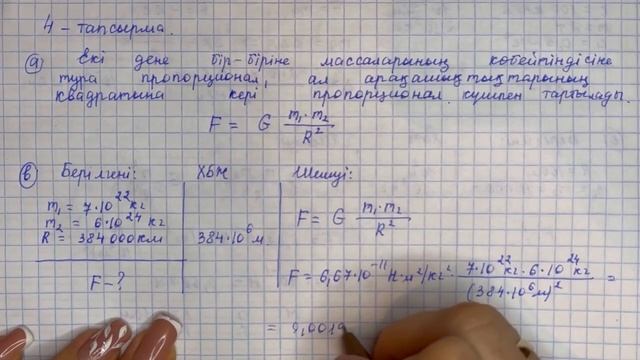 4 - тапсырма.
а) Екі дене бір-біріне массаларының көбейтіндісіне
тура пропорционал, ал арақашықтықтарының
квадратына кері пропорционал күшпен тартылады.
F = G m₁·m₂/R²
в) Берілгені: ХБЖ Шешуі:
m₁ = 7·10²² кг
m₂ = 6·10²⁴ кг
R = 384 000 км 384·10⁶ м
F = G m₁·m₂/R²
F - ?
F = 6,67·10⁻¹¹ Н·м²/кг² · 7·10²² кг·6·10²⁴ кг/(384·10⁶ м)² =
=